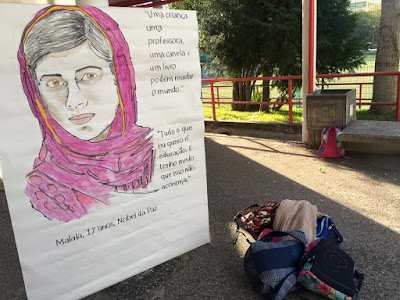 "Uma criança
uma
professora,
uma caneta e
um livro
podem mudar
o mundo."
"Tudo o que
eu quero é
educação. E
tenho medo
que isso não
aconteça."
Malala, 17 anos, Nobel da Paz